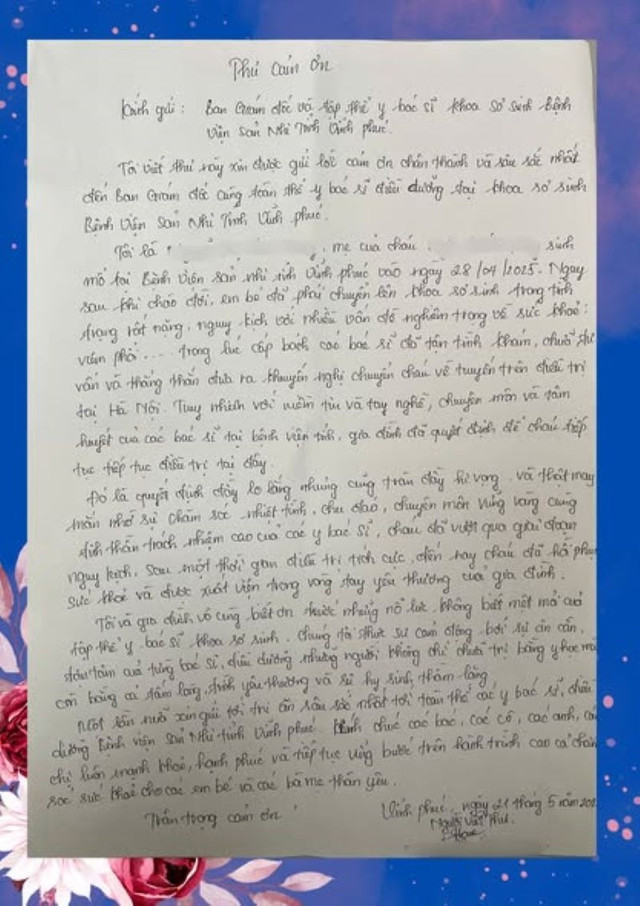 Thư cảm ơn
Kính gửi: Ban Giám đốc và tập thể y bác sĩ khoa sơ sinh Bệnh
Viện Sản Nhi Tỉnh Vĩnh Phúc.
Tôi viết thư này xin được gửi lời cảm ơn chân thành và sâu sắc nhất
đến Ban Giám đốc cùng toàn thể y bác sĩ điều dưỡng tại khoa sơ sinh
Bệnh Viện Sản Nhi Tỉnh Vĩnh Phúc.
Tôi là , mẹ của cháu sinh
mổ tại Bệnh Viện sản nhi tỉnh Vĩnh Phúc vào ngày 28/04/2025. Ngay
sau khi chào đời, em bé đã phải chuyển lên khoa sơ sinh trong tình
trạng rất nặng, nguy kịch với nhiều vấn đề nghiêm trọng về sức khoẻ:
viêm phổi .... trong lúc cấp bách các bác sĩ đã tận tình khám,
vấn và thẳng thắn đưa ra khuyến nghị chuyển cháu về tuyến trên điều trị
tại Hà Nội. Tuy nhiên với niềm tin và tay nghề, chuyên môn và tâm
huyết của các bác sĩ tại bệnh viện tỉnh, gia đình đã quyết định để cháu tiếp
tục tiếp tục điều trị tại đây.
Đó là quyết định đầy lo lắng nhưng cũng tràn đầy hi vọng. và thật may
mắn nhờ sự chăm sóc nhiệt tình, chu đáo, chuyên môn vững vàng cùng
tinh thần trách nhiệm cao của các y bác sĩ, cháu đã vượt qua giai đoạn
nguy kịch, sau một thời gian điều trị tích cực, đến nay cháu đã hồi
sức khoẻ và được xuất viện trong vòng tay yêu thương của gia đình.
Tôi và gia đình vô cùng biết ơn trước những nỗ lực không biết mệt mỏi của
tập thể y bác sĩ khoa sơ sinh. chúng tôi thực sự cảm động bởi sự ân cần,
tâm của từng bác sĩ, điều dưỡng những người không chỉ chữa trị bằng y học mà
còn bằng cả tấm lòng, tình yêu thương và sự hy sinh thầm lặng.
Một lần nữa xin gửi tới tri ân sâu sắc nhất tới toàn thể các y bác sĩ, điều
dưỡng Bệnh viện Sản Nhi tỉnh Vĩnh Phúc. Kính chúc các bác, các cô, các anh,
chị luôn mạnh khoẻ, hạnh phúc và tiếp tục vững bước trên hành trình cao cả chăm
sóc sức khoẻ cho các em bé và các bà mẹ thân yêu.
Trân trọng cảm ơn !
Vĩnh Phúc, ngày 21 tháng 5 năm
Người viết thư